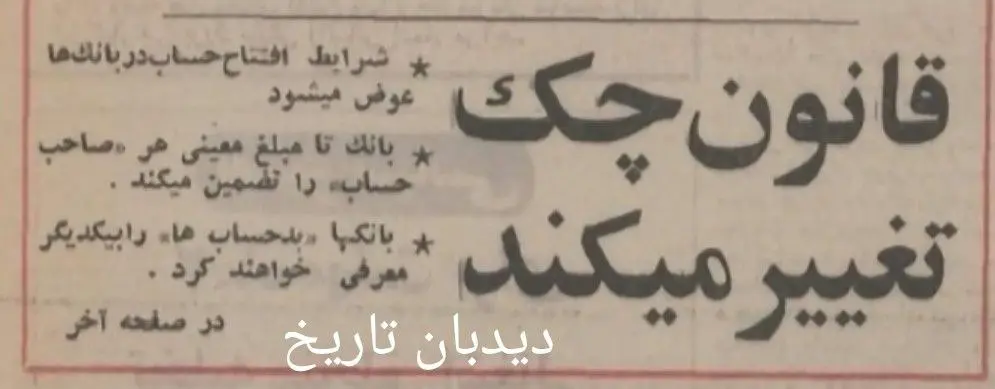 قانون چک
تغییر میکند
★ شرایط افتتاح حساب در بانك‌ها
عوض میشود
★ بانك تا مبلغ معینی هر «صاحب
حساب» را تضمین میکند .
★ بانکها «بدحساب ها» رابیکدیگر
معرفی خواهند کرد .
در صفحه آخر
دیدبان تاریخ